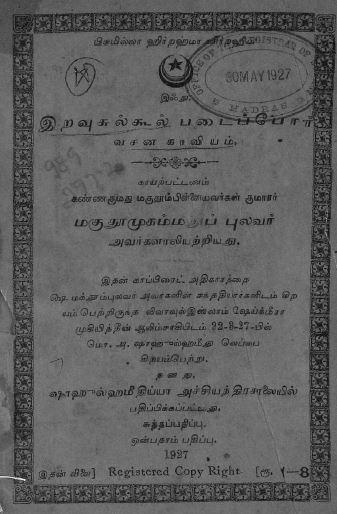 பிசுமில்லா ஹிர்றஹ்மா னிர்றஹீம்
OFFICE OF THE REGISTRAR OF
30 MAY 1927
MADRAS
இஃது
இறவுசுல்கூல் படைப்போர்
வசன காவியம்.
காயற்பட்டணம்
கண்ணகுமது மகுதூம்பிள்ளையவர்கள் குமாரர்
மகுதூமுகம்மதுப் புலவர்
அவர்களாலியற்றியது.
இதன் காப்பிரைட் அதிகாரத்தை
ஷெ மக்தூம்புலவர் அவர்களின் சந்ததியார்களிடம் கிற
யம் பெற்றிருந்த லிவாவுல்இஸ்லாம் ஷெய்க்மீரா
முகியித்தீன் ஆலிம்சாகிபிடம் 22-8-27-யில்
மெ. அ. ஷாஹுல்ஹமீது லெப்பை
கிறயம்பெற்று.
தனது
ஷாஹுல்ஹமீதிய்யா அச்சியந்திரசாலையில்
பதிப்பிக்கப்பட்டது.
சுத்தப்பதிப்பு.
ஒன்பதாம் பதிப்பு.
1927
இதன் விலை] Registered Copy Right [ரூ. 1—8